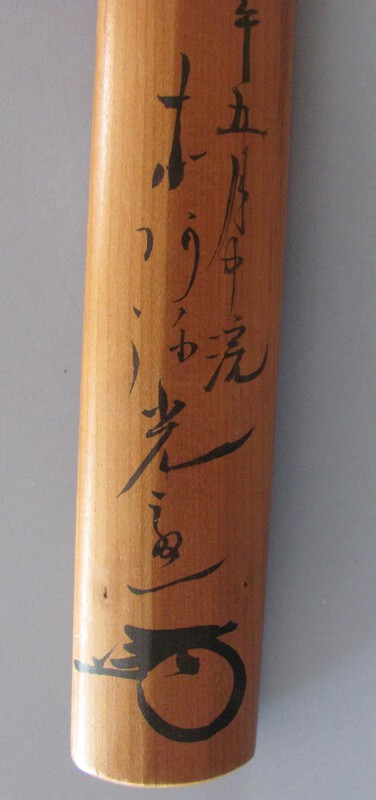 五月中浣
本阿弥光遜